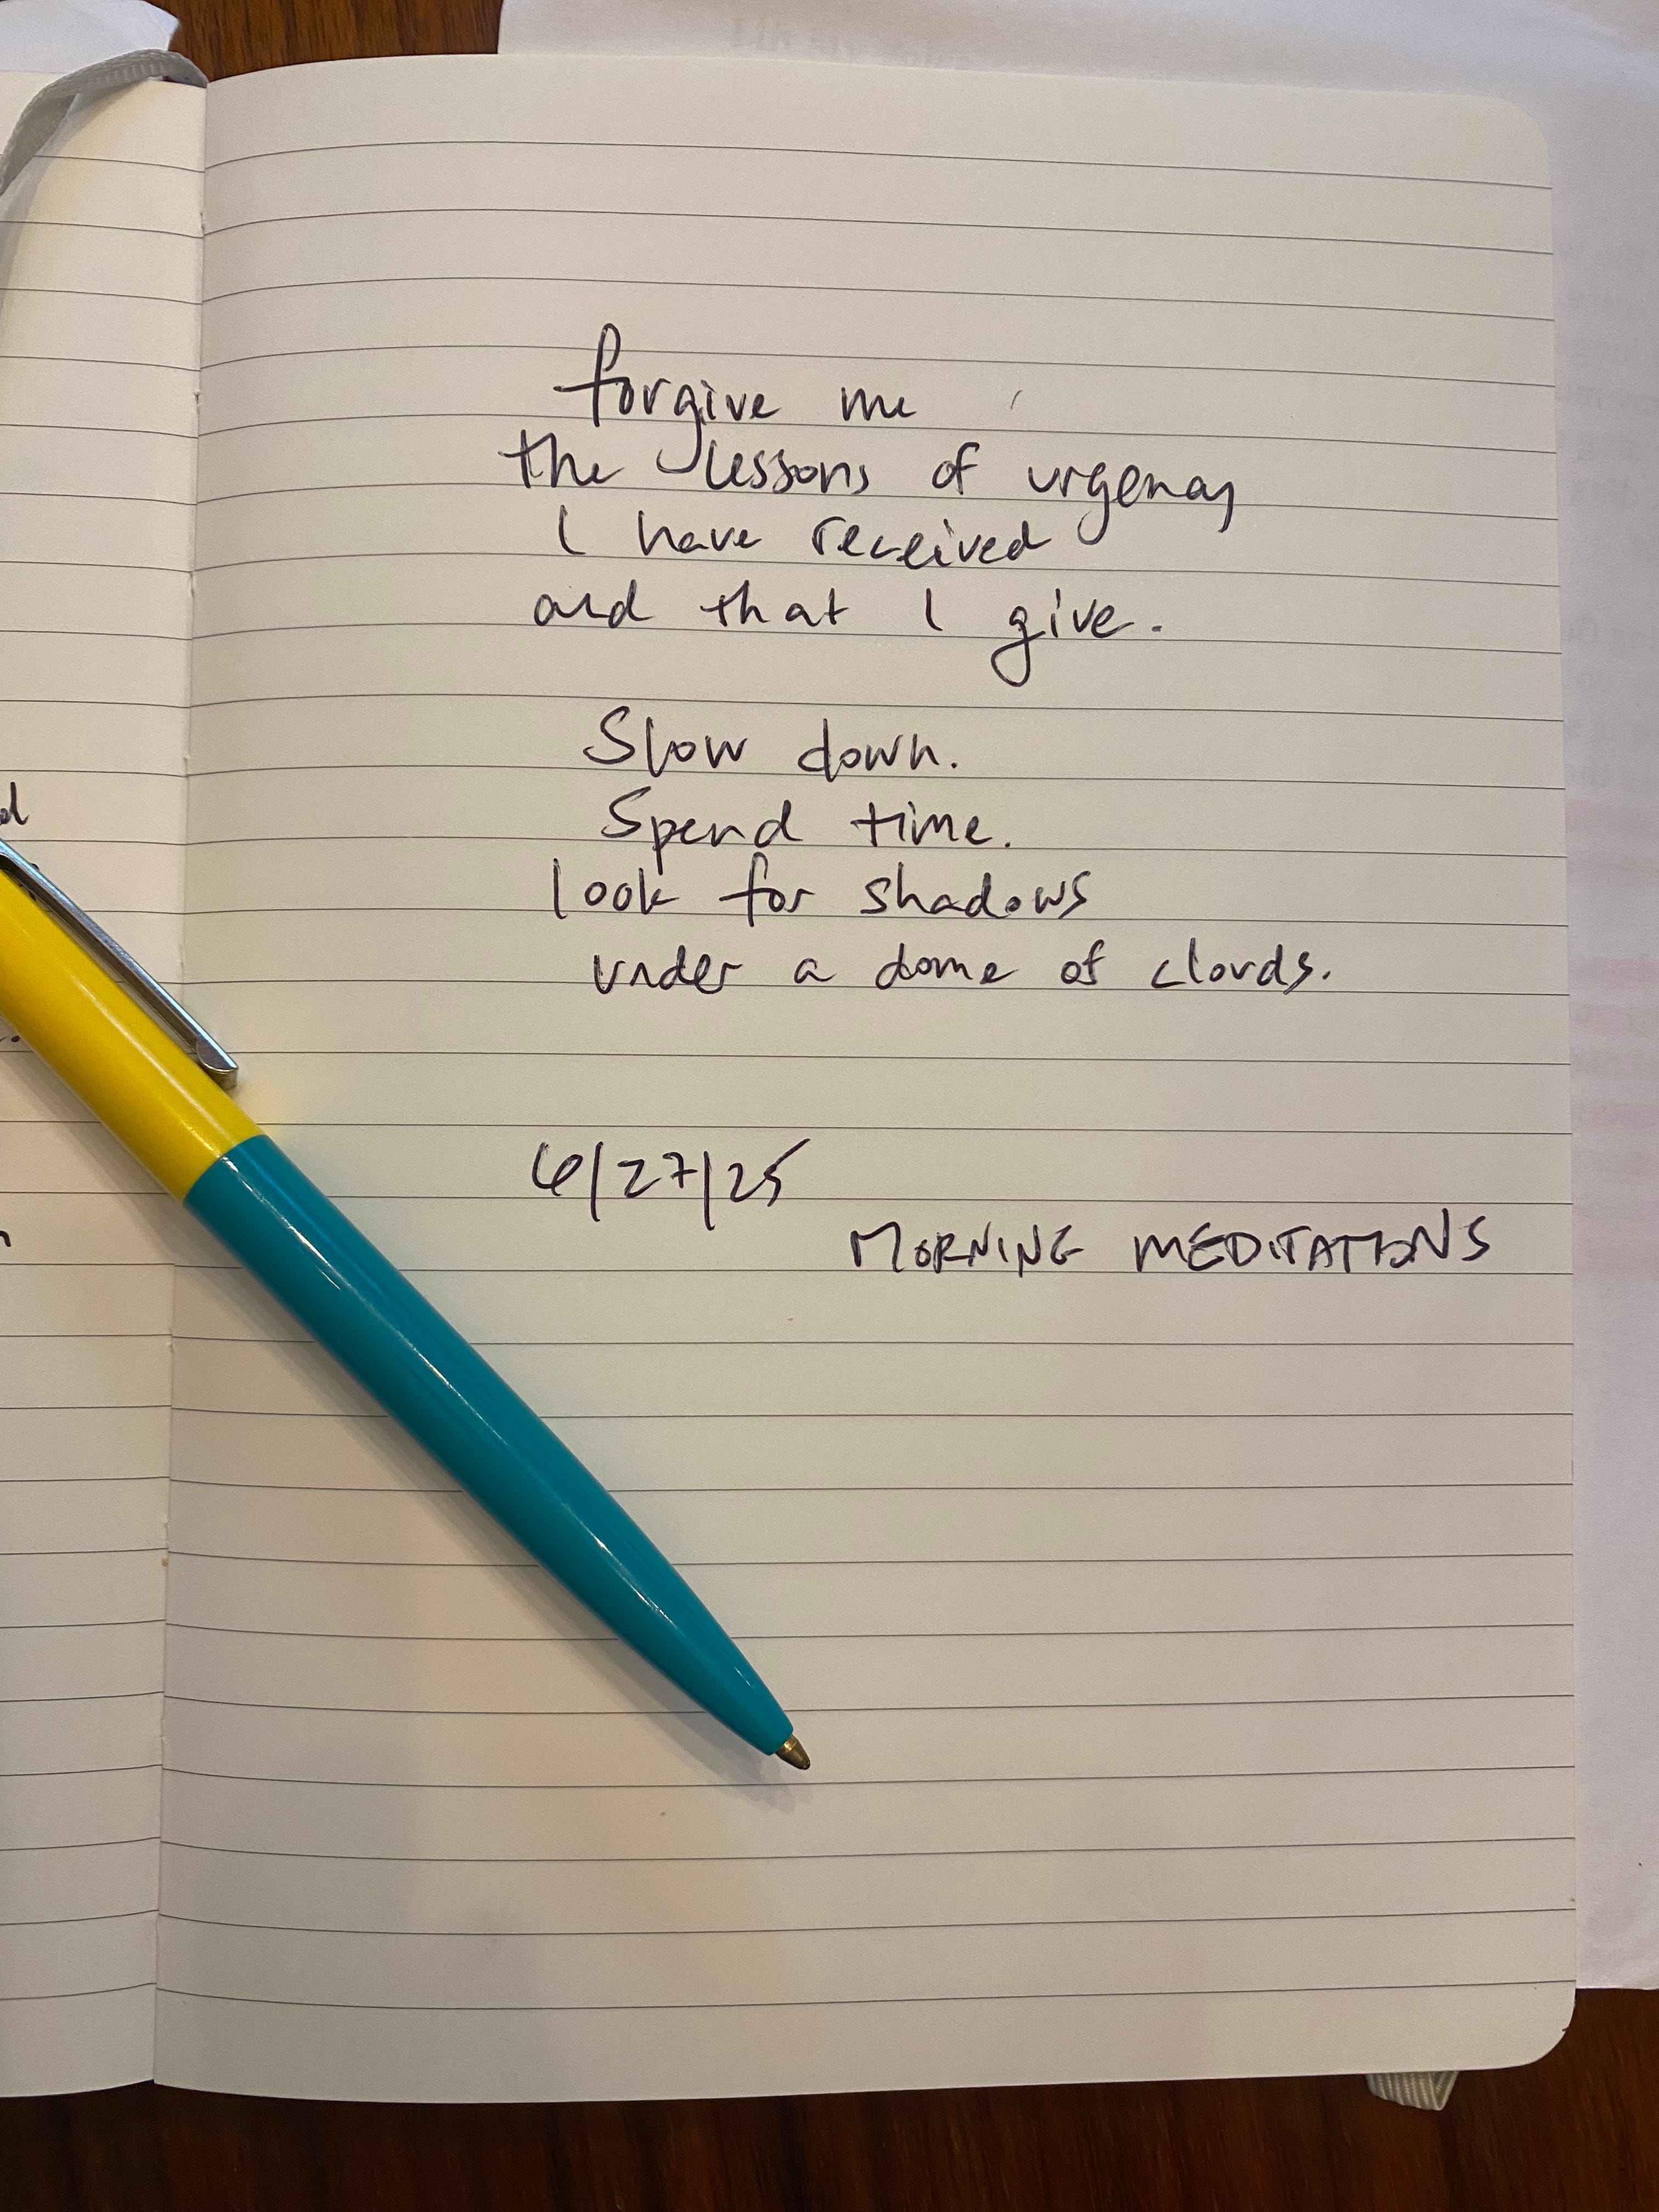 forgive me
the lessons of urgency
I have received
and that I give.
Slow down.
Spend time.
look for shadows
under a dome of clouds.
6/27/25
MORNING MEDITATIONS